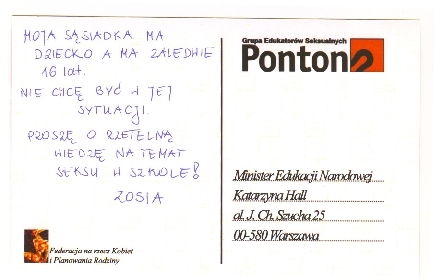 MOJA SĄSIADKA MA
DZIECKO A MA ZALEDWIE
16 lat.
NIE CHCĘ BYĆ W TEJ
SYTUACJI.
PROSZĘ O RZETELNĄ
WIEDZĘ NA TEMAT
SEKSU W SZKOLE!
ZOSIA
Federacja na rzecz Kobiet
i Planowania Rodziny
Grupa Edukatorów Seksualnych
Ponton
Minister Edukacji Narodowej
Katarzyna Hall
al. J. Ch. Szucha 25
00-580 Warszawa